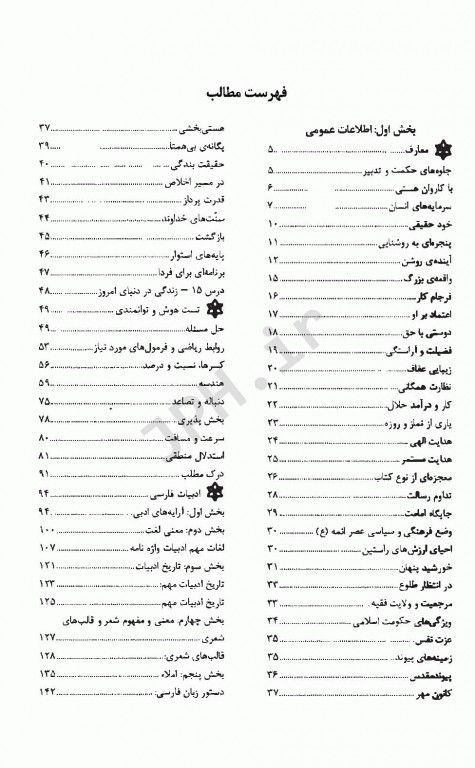 فهرست مطالب
بخش اول: اطلاعات عمومی
معارف ۵
جلوه‌های حکمت و تدبیر ۵
با کاروان هستی ۶
سرمایه‌های انسان ۷
خود حقیقی ۱۰
پنجره‌ای به روشنایی ۱۱
آینده‌ی روشن ۱۲
واقعه‌ی بزرگ ۱۵
فرجام کار ۱۶
اعتماد بر او ۱۷
دوستی با حق ۱۸
فضیلت و آراستگی ۱۹
زیبایی عفاف ۲۰
نظارت همگانی ۲۱
کار و درآمد حلال ۲۲
یاری از نماز و روزه ۲۳
هدایت الهی ۲۴
هدایت مستمر ۲۵
معجزه‌ای از نوع کتاب ۲۶
تداوم رسالت ۲۸
جایگاه امامت ۲۹
وضع فرهنگی و سیاسی عصر ائمه (ع) ۳۰
احیای ارزش‌های راستین ۳۰
خورشید پنهان ۳۱
در انتظار طلوع ۳۳
مرجعیت و ولایت فقیه ۳۳
ویژگی‌های حکومت اسلامی ۳۴
عزت نفس ۳۵
زمینه‌های پیوند ۳۵
پیوندمقدس ۳۶
کانون مهر ۳۷
هستی‌بخشی ۳۷
یگانه‌ی بی‌همتا ۳۹
حقیقت بندگی ۴۰
در مسیر اخلاص ۴۱
قدرت پرداز ۴۳
سنّت‌های خداوند ۴۴
بازگشت ۴۵
پایه‌های استوار ۴۶
برنامه‌ای برای فردا ۴۷
درس ۱۵ – زندگی در دنیای امروز ۴۸
تست هوش و توانمندی ۴۹
حل مسئله ۴۹
روابط ریاضی و فرمول‌های مورد نیاز ۵۳
کسرها، نسبت و درصد ۵۶
هندسه ۵۹
دنباله و تصاعد ۷۵
بخش پذیری ۷۸
سرعت و مسافت ۸۰
استدلال منطقی ۸۱
درک مطلب ۹۱
ادبیات فارسی ۹۴
بخش اول: آرایه‌های ادبی ۹۴
بخش دوم: معنی لغت ۱۰۰
لغات مهم ادبیات واژه نامه ۱۰۷
بخش سوم: تاریخ ادبیات ۱۲۱
تاریخ ادبیات مهم: ۱۲۳
تاریخ ادبیات مهم ۱۲۵
بخش چهارم: معنی و مفهوم شعر و قالب‌های
شعری ۱۲۷
قالب‌های شعری: ۱۲۸
بخش پنجم: املاء ۱۳۵
دستور زبان فارسی: ۱۴۲
JPH.ir